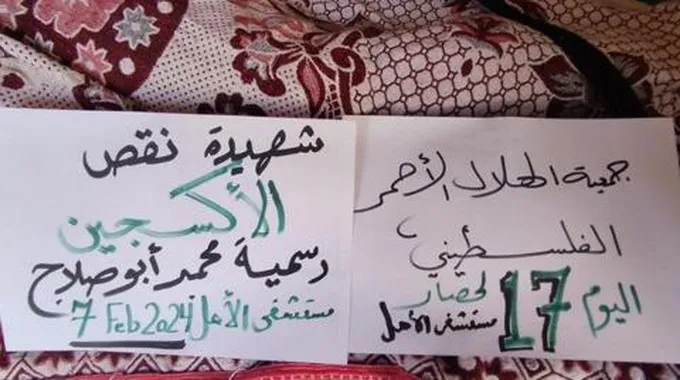 جمعية الهلال الأحمر
الفلسطيني
اليوم 17 لحصار
مستشفى الأمل
شهيدة نقص
الأكسجين
رسمية محمد أبو صلاح
مستشفى الأمل 7 Feb 2024